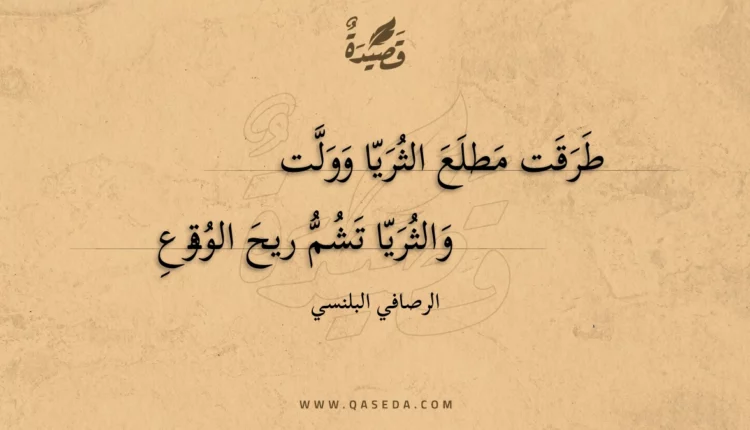 قَصِيْدَةٌ
طَرَقَت مَطلَعَ الثُرَيّا وَوَلَّت
وَالثُرَيّا تَشُمُّ ريحَ الوُقوعِ
الرصافي البلنسي
WWW.QASEDA.COM